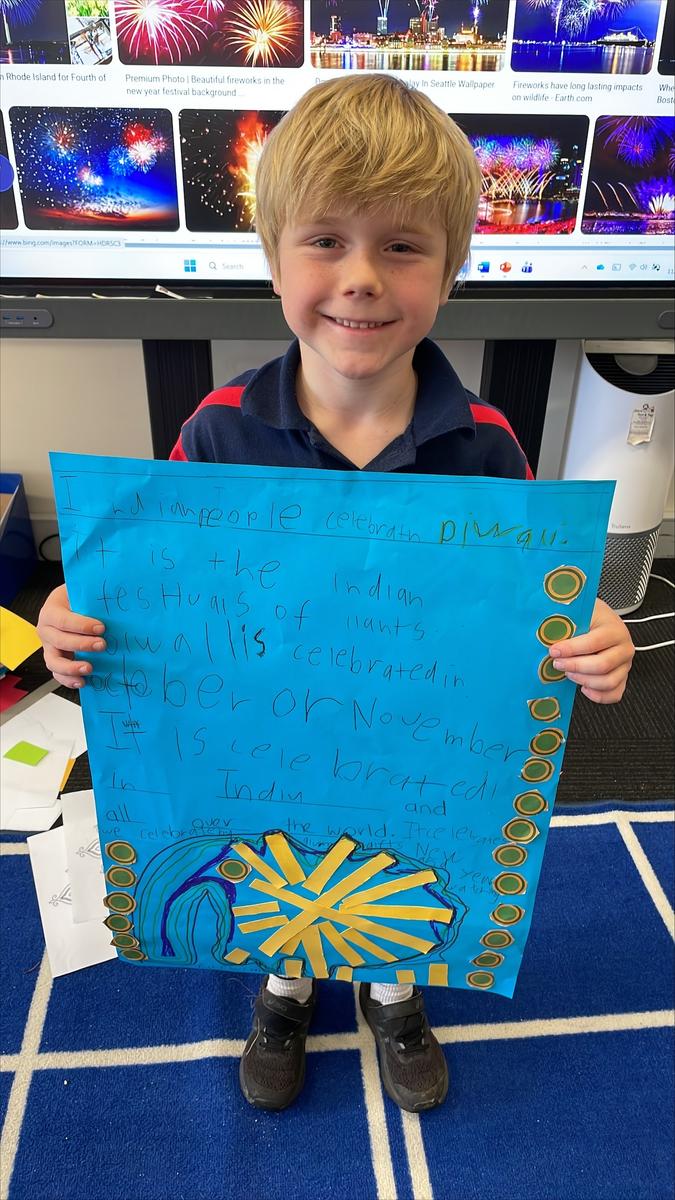 n Rhode Island for Fourth of
Premium Photo | Beautiful fireworks in the
new year festival background ...
lay In Seattle Wallpaper
Fireworks have long lasting impacts
on wildlife - Earth.com
Whe
Bost
://www.bing.com/images?FORM=HDRSC3
Search
Indian people celebrath Diwali.
It is the Indian
festivals of liants.
Diwallis celebrated in
October or November
It is celebrated!
In India and
all over the world. It
we celebrate New